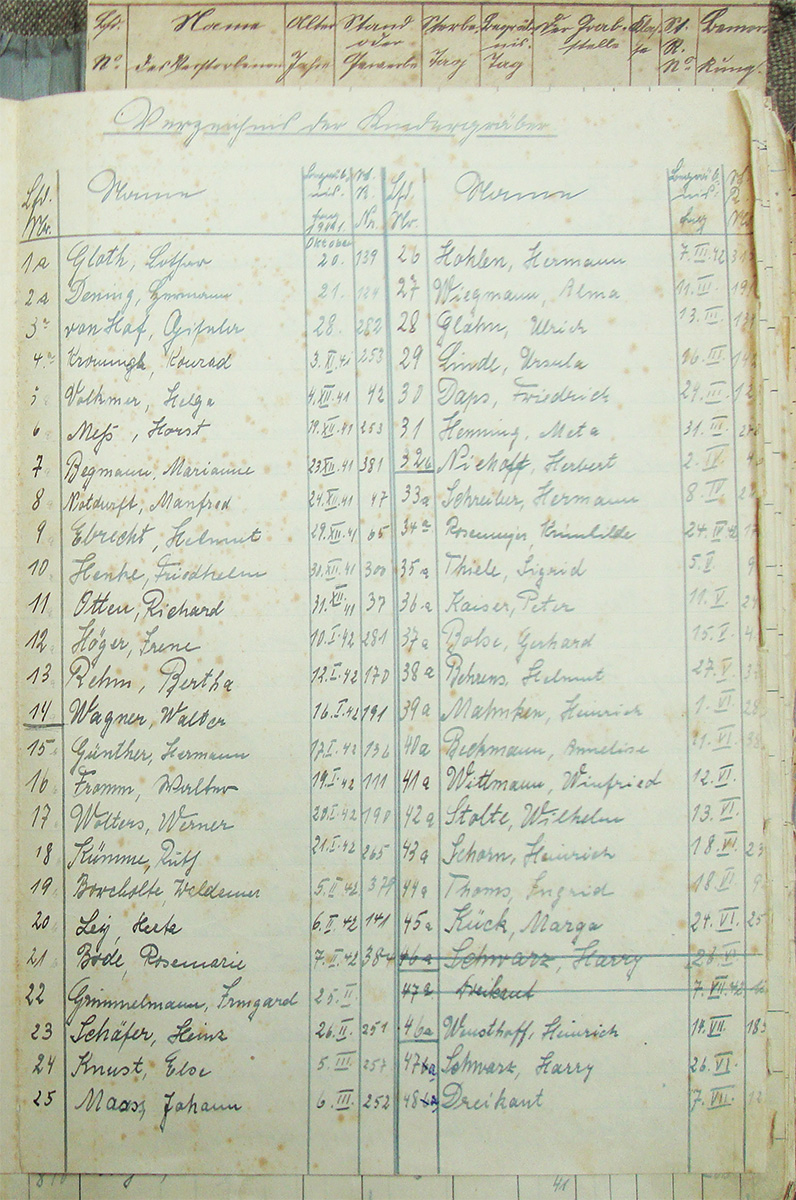 Lfd. Name Alter Stand Sterbe Begräb- Der Grab- Klas- St. Bemer-
oder nis. stelle se R.
No. des Verstorbenen Jahre Gewerbe Tag Tag No. kung.
Verzeichnis der Kindergräber
Lfd. Nr. Name Begräb- nis- tag 1941. St. R. Nr. Lfd. Nr. Name Begräb- nis- tag St. R.
Oktober
1a Gloth, Lothar 20. 139 26 Hohlen, Hermann 7.III.42
2a Dening, Hermann 21. 27 Wiegmann, Alma 11.III.
3a von Hof, 28. 282 28 Glahn, Ulrich 13.III.
4.a Konrad 3.XI.41 253 29 Linde, Ursula 16.III.
5 Volkmer, Helga 4.XII.41 42 30 Daps, Friedrich 24.III.
6 Meß, Horst 19.XII.41 253 31 Henning, Meta 31.III.
7 Begmann, Marianne 23.XII.41 381 32b Niehoff, Herbert 2.IV.
8 Notdurft, Manfred 24.XII.41 47 33a Schreiber, Hermann 8.IV
9 Ebrecht, Helmut 29.XII.41 65 34a Rosemeyer, Krimhilde 24.IV.42
10 Henke, Friedhelm 30.XII.41 300 35a Thiele, Sigrid 5.V.
11 Otten, Richard 31.XII.41 37 36a Kaiser, Peter 11.V.
12 Höger, Irene 10.I.42 281 37a Bolse, Gerhard 15.V.
13 Rehm, Bertha 12.I.42 170 38a Behrens, Helmut 27.V.
14 Wagner, Walter 16.I.42 191 39a Mahnken, Heinrich 1.VI.
15 Günther, Hermann 17.I.42 136 40a Beckmann, Annelise 11.VI.
16 Fromm, Walter 19.I.42 111 41a Wittmann, Winfried 12.VI.
17 Wolters, Werner 20.I.42 190 42a Stolte, Wilhelm 13.VI.
18 Kümme, Ruth 21.I.42 265 43a Schorn, Heinrich 18.VI.
19 Borcholte, Waldemar 5.II.42 379 44a Thoms, Ingrid 18.VI
20 Ley, Herta 6.II.42 141 45a Kück, Marga 24.VI.
21 Bode, Rosemarie 7.II.42 384 46a Schwarz, Harry 26.VI.
22 Grimmelmann, Irmgard 25.II. 47a Dreikaut 7.VII.42
23 Schäfer, Heinz 26.II. 251 46a Wusthoff, Heinrich 14.VII.
24 Knust, Else 5.III. 257 47a Schwarz, Harry 26.VI.
25 Maas, Johann 6.III. 252 48a Dreikaut 7.VII.
41